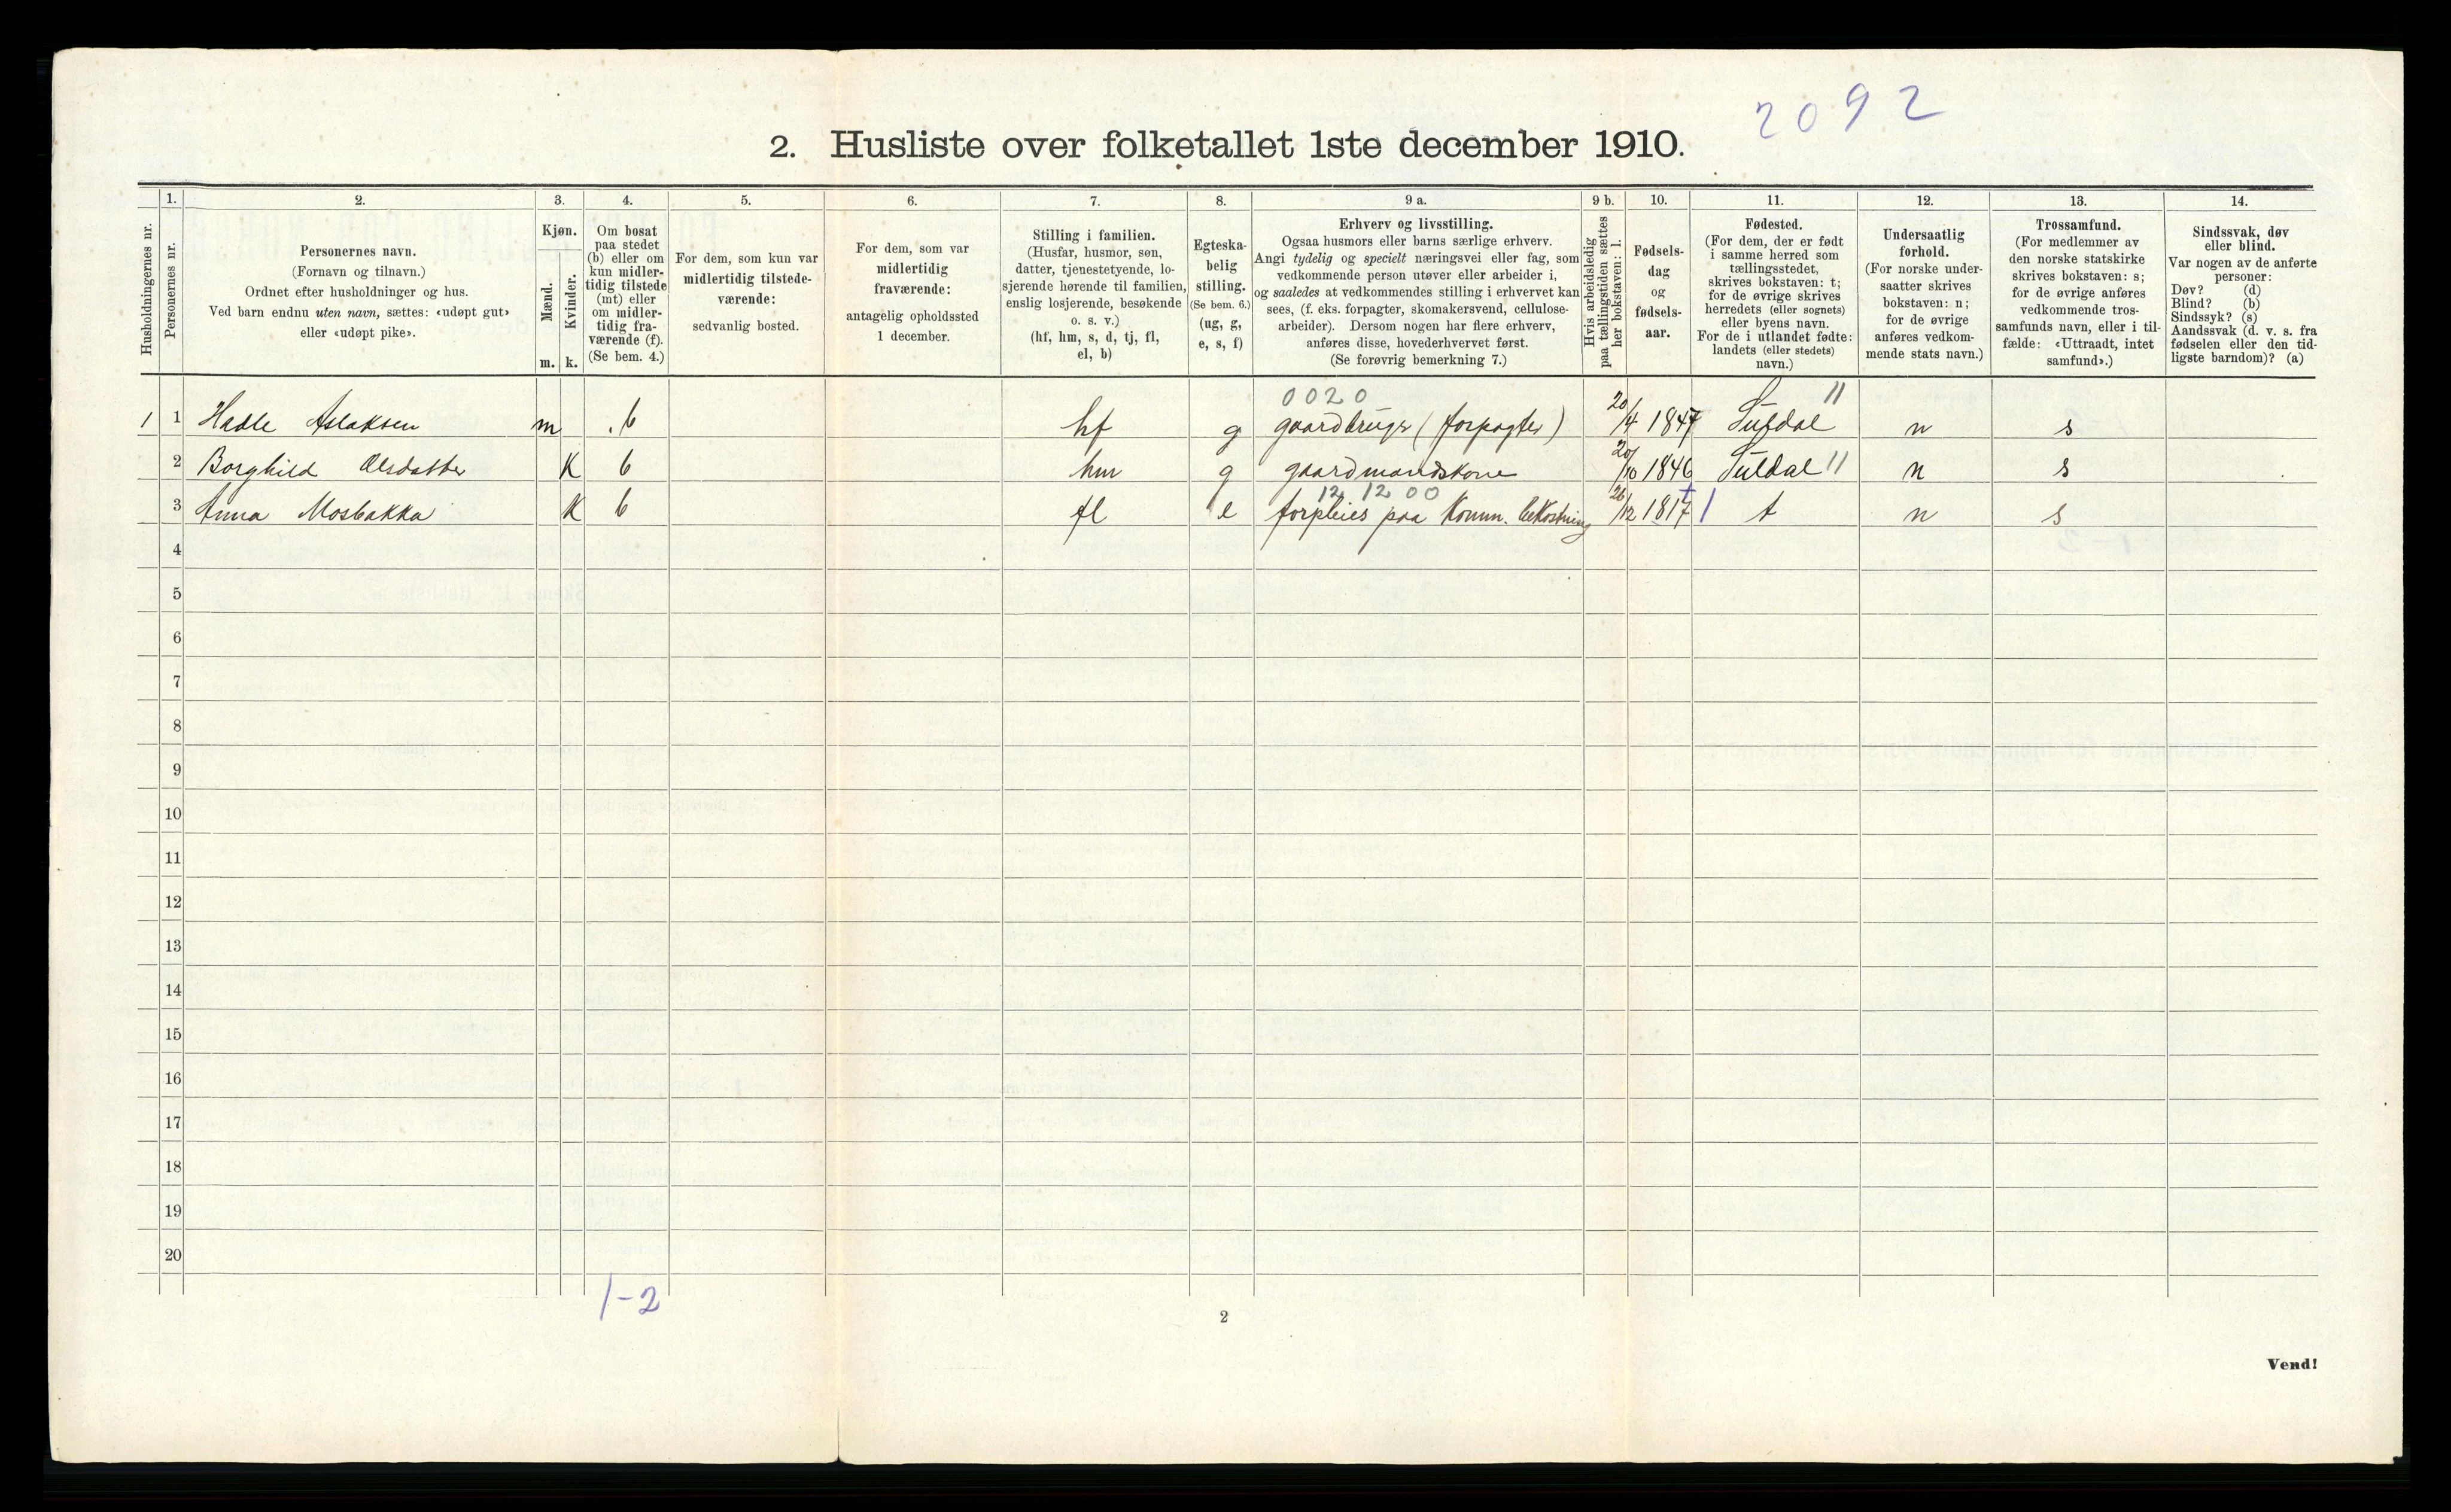 2092
2. Husliste over folketallet 1ste december 1910.
Husholdningernes nr.
1.
Personernes nr.
2.
Personernes navn.
(Fornavn og tilnavn.)
Ordnet efter husholdninger og hus.
Ved barn endnu uten navn, sættes: «udøpt gut»
eller «udøpt pike».
3.
Kjøn.
Mænd.
Kvinder.
m. k.
4.
Om bosat
paa stedet
(b) eller om
kun midler-
tidig tilstede
(mt) eller
om midler-
tidig fra-
værende (f).
(Se bem. 4.)
5.
For dem, som kun var
midlertidig tilstede-
værende:
sedvanlig bosted.
6.
For dem, som var
midlertidig
fraværende:
antagelig opholdssted
1 december.
7.
Stilling i familien.
(Husfar, husmor, søn,
datter, tjenestetyende, lo-
sjerende hørende til familien,
enslig losjerende, besøkende
o. s. v.)
(hf, hm, s, d, tj, fl,
el, b)
8.
Egteska-
belig
stilling.
(Se bem. 6.)
(ug, g,
e, s, f)
9 a.
Erhverv og livsstilling.
Ogsaa husmors eller barns særlige erhverv.
Angi tydelig og specielt næringsvei eller fag, som
vedkommende person utøver eller arbeider i,
og saaledes at vedkommendes stilling i erhvervet kan
sees, (f. eks. forpagter, skomakersvend, cellulose-
arbeider). Dersom nogen har flere erhverv,
anføres disse, hovederhvervet først.
(Se forøvrig bemerkning 7.)
9 b.
Hvis arbeidsledig
paa tællingstiden sættes
her bokstaven: l.
10.
Fødsels-
dag
og
fødsels-
aar.
11.
Fødested.
(For dem, der er født
i samme herred som
tællingsstedet,
skrives bokstaven: t;
for de øvrige skrives
herredets (eller sognets)
eller byens navn.
For de i utlandet fødte:
landets (eller stedets)
navn.)
12.
Undersaatlig
forhold.
(For norske under-
saatter skrives
bokstaven: n;
for de øvrige
anføres vedkom-
mende stats navn.)
13.
Trossamfund.
(For medlemmer av
den norske statskirke
skrives bokstaven: s;
for de øvrige anføres
vedkommende tros-
samfunds navn, eller i til-
fælde: «Uttraadt, intet
samfund».)
14.
Sindssvak, døv
eller blind.
Var nogen av de anførte
personer:
Døv? (d)
Blind? (b)
Sindssyk? (s)
Aandssvak (d. v. s. fra
fødselen eller den tid-
ligste barndom)? (a)
0020 11
1 1 Hadle Aslaksen m b hf g gaardbruger (forpagter) 20/4 1847 Suldal n s
2 Borghild Olsdatter K b hm g gaardmandskone 20/10 1846 Suldal 11 n s
12 12 00
3 Anna Mosbakka K b fl e forpleies paa Komm. bekostning 26/12 1817 t n s
4
5
6
7
8
9
10
11
12
13
14
15
16
17
18
19
20
1-2
2
Vend!